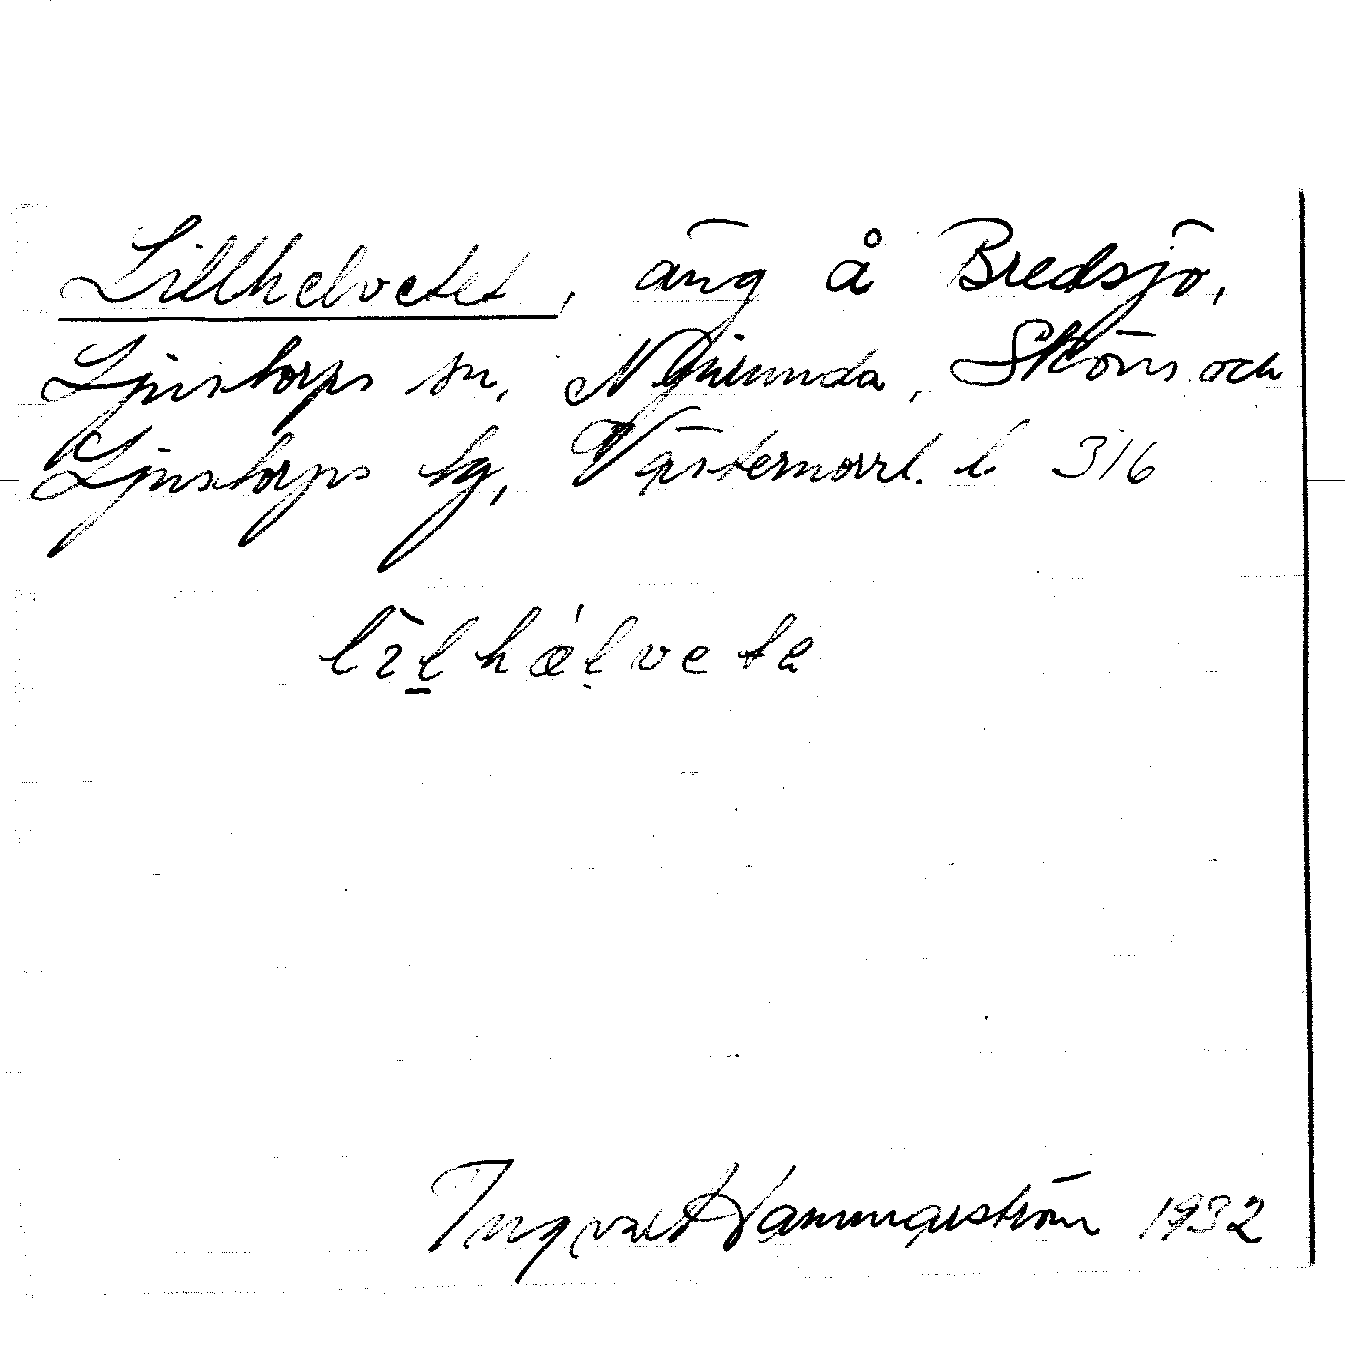 Lillhelvetet, äng å Bredsjö,
Ljustorps sn, Njurunda, Sköns och
Ljustorps tg, Västernorrl. l 316
lɩ̄l̠hæ̀ḷveta
Ingvar Hammarström 1932